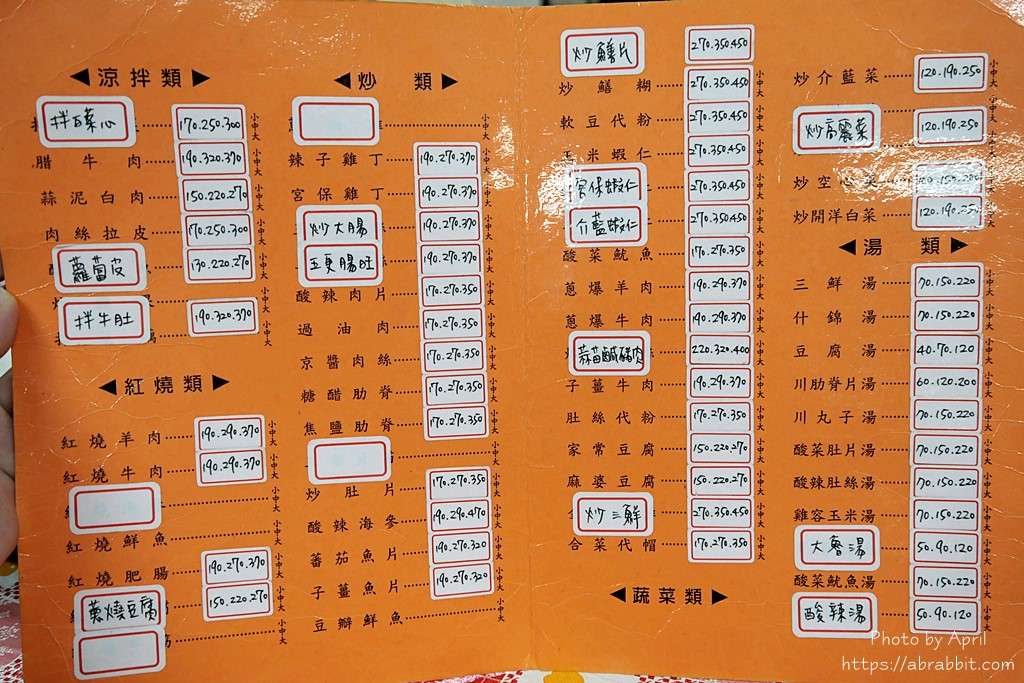 ◀涼拌類▶
拌白菜心 170.250.300 小中大
腊牛肉 190.320.370 小中大
蒜泥白肉 150.220.270 小中大
肉絲拉皮 170.250.300 小中大
蘿蔔皮 130.220.270 小中大
拌牛肚 190.320.370 小中大
◀紅燒類▶
紅燒羊肉 190.290.370 小中大
紅燒牛肉 190.290.370 小中大
小中大
紅燒鮮魚 小中大
紅燒肥腸 190.270.370 小中大
蔥燒豆腐 150.220.270 小中大
小中大
◀炒類▶
小中大
辣子雞丁 190.270.370 小中大
宮保雞丁 190.270.370 小中大
炒大腸 190.270.370 小中大
五更腸旺 190.270.370 小中大
酸辣肉片 170.270.350 小中大
過油肉 170.270.350 小中大
京醬肉絲 170.270.350 小中大
糖醋肋脊 170.270.350 小中大
焦鹽肋脊 170.270.350 小中大
小中大
炒肚片 170.270.350 小中大
酸辣海參 190.290.470 小中大
蕃茄魚片 190.270.320 小中大
子薑魚片 190.270.320 小中大
豆瓣鮮魚 小中大
炒鱔片 270.350.450
炒鱔糊 270.350.450 小中大
軟豆代粉 270.350.450 小中大
玉米蝦仁 270.350.450 小中大
宮保蝦仁 270.350.450 小中大
介藍蝦仁 270.350.450 小中大
酸菜魷魚 170.270.350 小中大
蔥爆羊肉 190.290.370 小中大
蔥爆牛肉 190.290.370 小中大
蒜苗鹹豬肉 220.320.400 小中大
子薑牛肉 190.290.370 小中大
肚絲代粉 170.270.350 小中大
家常豆腐 150.220.270 小中大
麻婆豆腐 150.220.270 小中大
炒三鮮 270.350.450 小中大
合菜代帽 170.270.350 小中大
◀蔬菜類▶
炒介藍菜 120.190.250 小中大
炒高麗菜 120.190.250 小中大
炒空心菜 小中大
炒開洋白菜 120.190.250 小中大
◀湯類▶
三鮮湯 70.150.220 小中大
什錦湯 70.150.220 小中大
豆腐湯 40.70.120 小中大
川肋脊片湯 60.120.200 小中大
川丸子湯 70.150.220 小中大
酸菜肚片湯 70.150.220 小中大
酸辣肚絲湯 70.150.220 小中大
雞容玉米湯 70.150.220 小中大
大魯湯 50.90.120 小中大
酸菜魷魚湯 70.150.220 小中大
酸辣湯 50.90.120 小中大
Photo by April
https://abrabbit.com